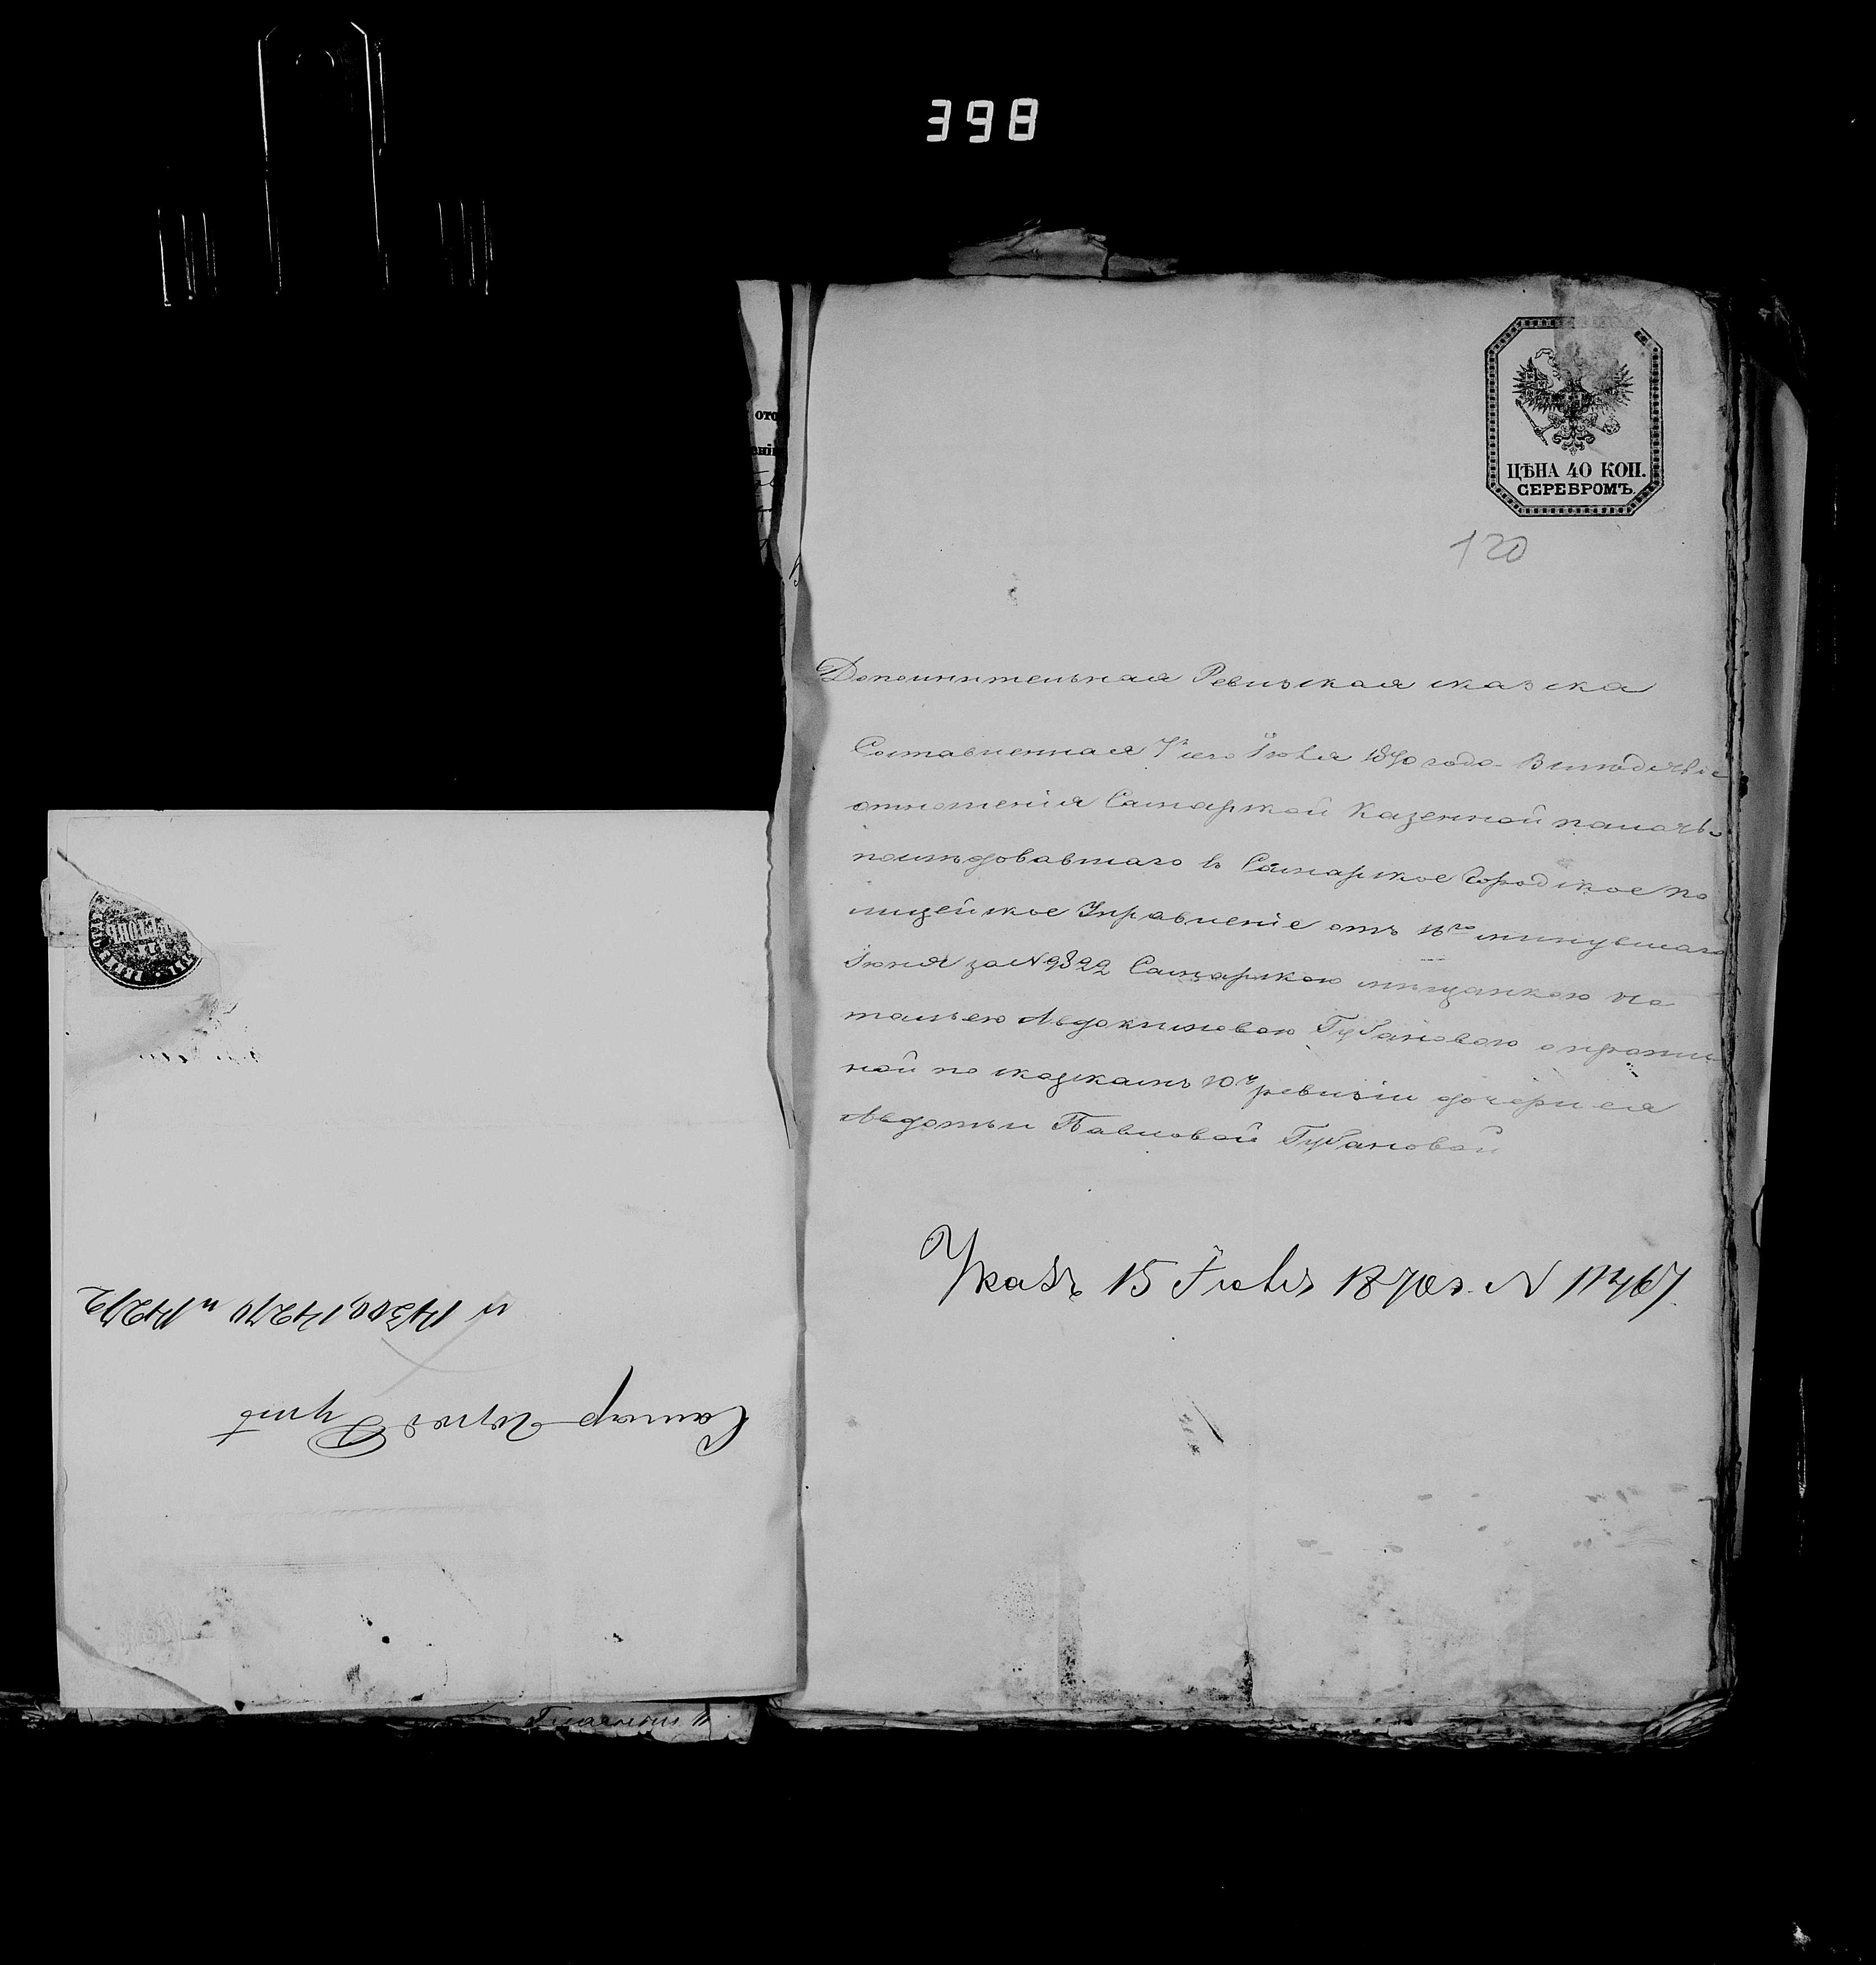 398
ЦѢНА 40 КОП.
СЕРЕБРОМЪ.
120
Дополнительная Ревизская сказка
Составленная 7го Іюля 1870 года. Вслѣдствіе
отношенія Самарской Казенной палаты
послѣдовавшаго въ Самарское Городское по
лицейское Управленіе отъ 16го минувшаго
Іюня за № 9822 Самарскою мѣщанкою На
тальею Авдокимовою Губановою о пропи
ной по сказкамъ 10й ревизіи дочери ея
Авдотьи Павловой Губановой
Указъ 15 Іюля 1870 г. N 11467.
Самар Город
и 14300, 14270 и 14272